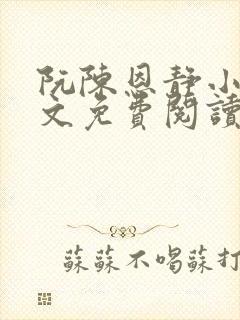 阮陳恩靜小
文免費閱讀
蘇蘇不喝蘇打